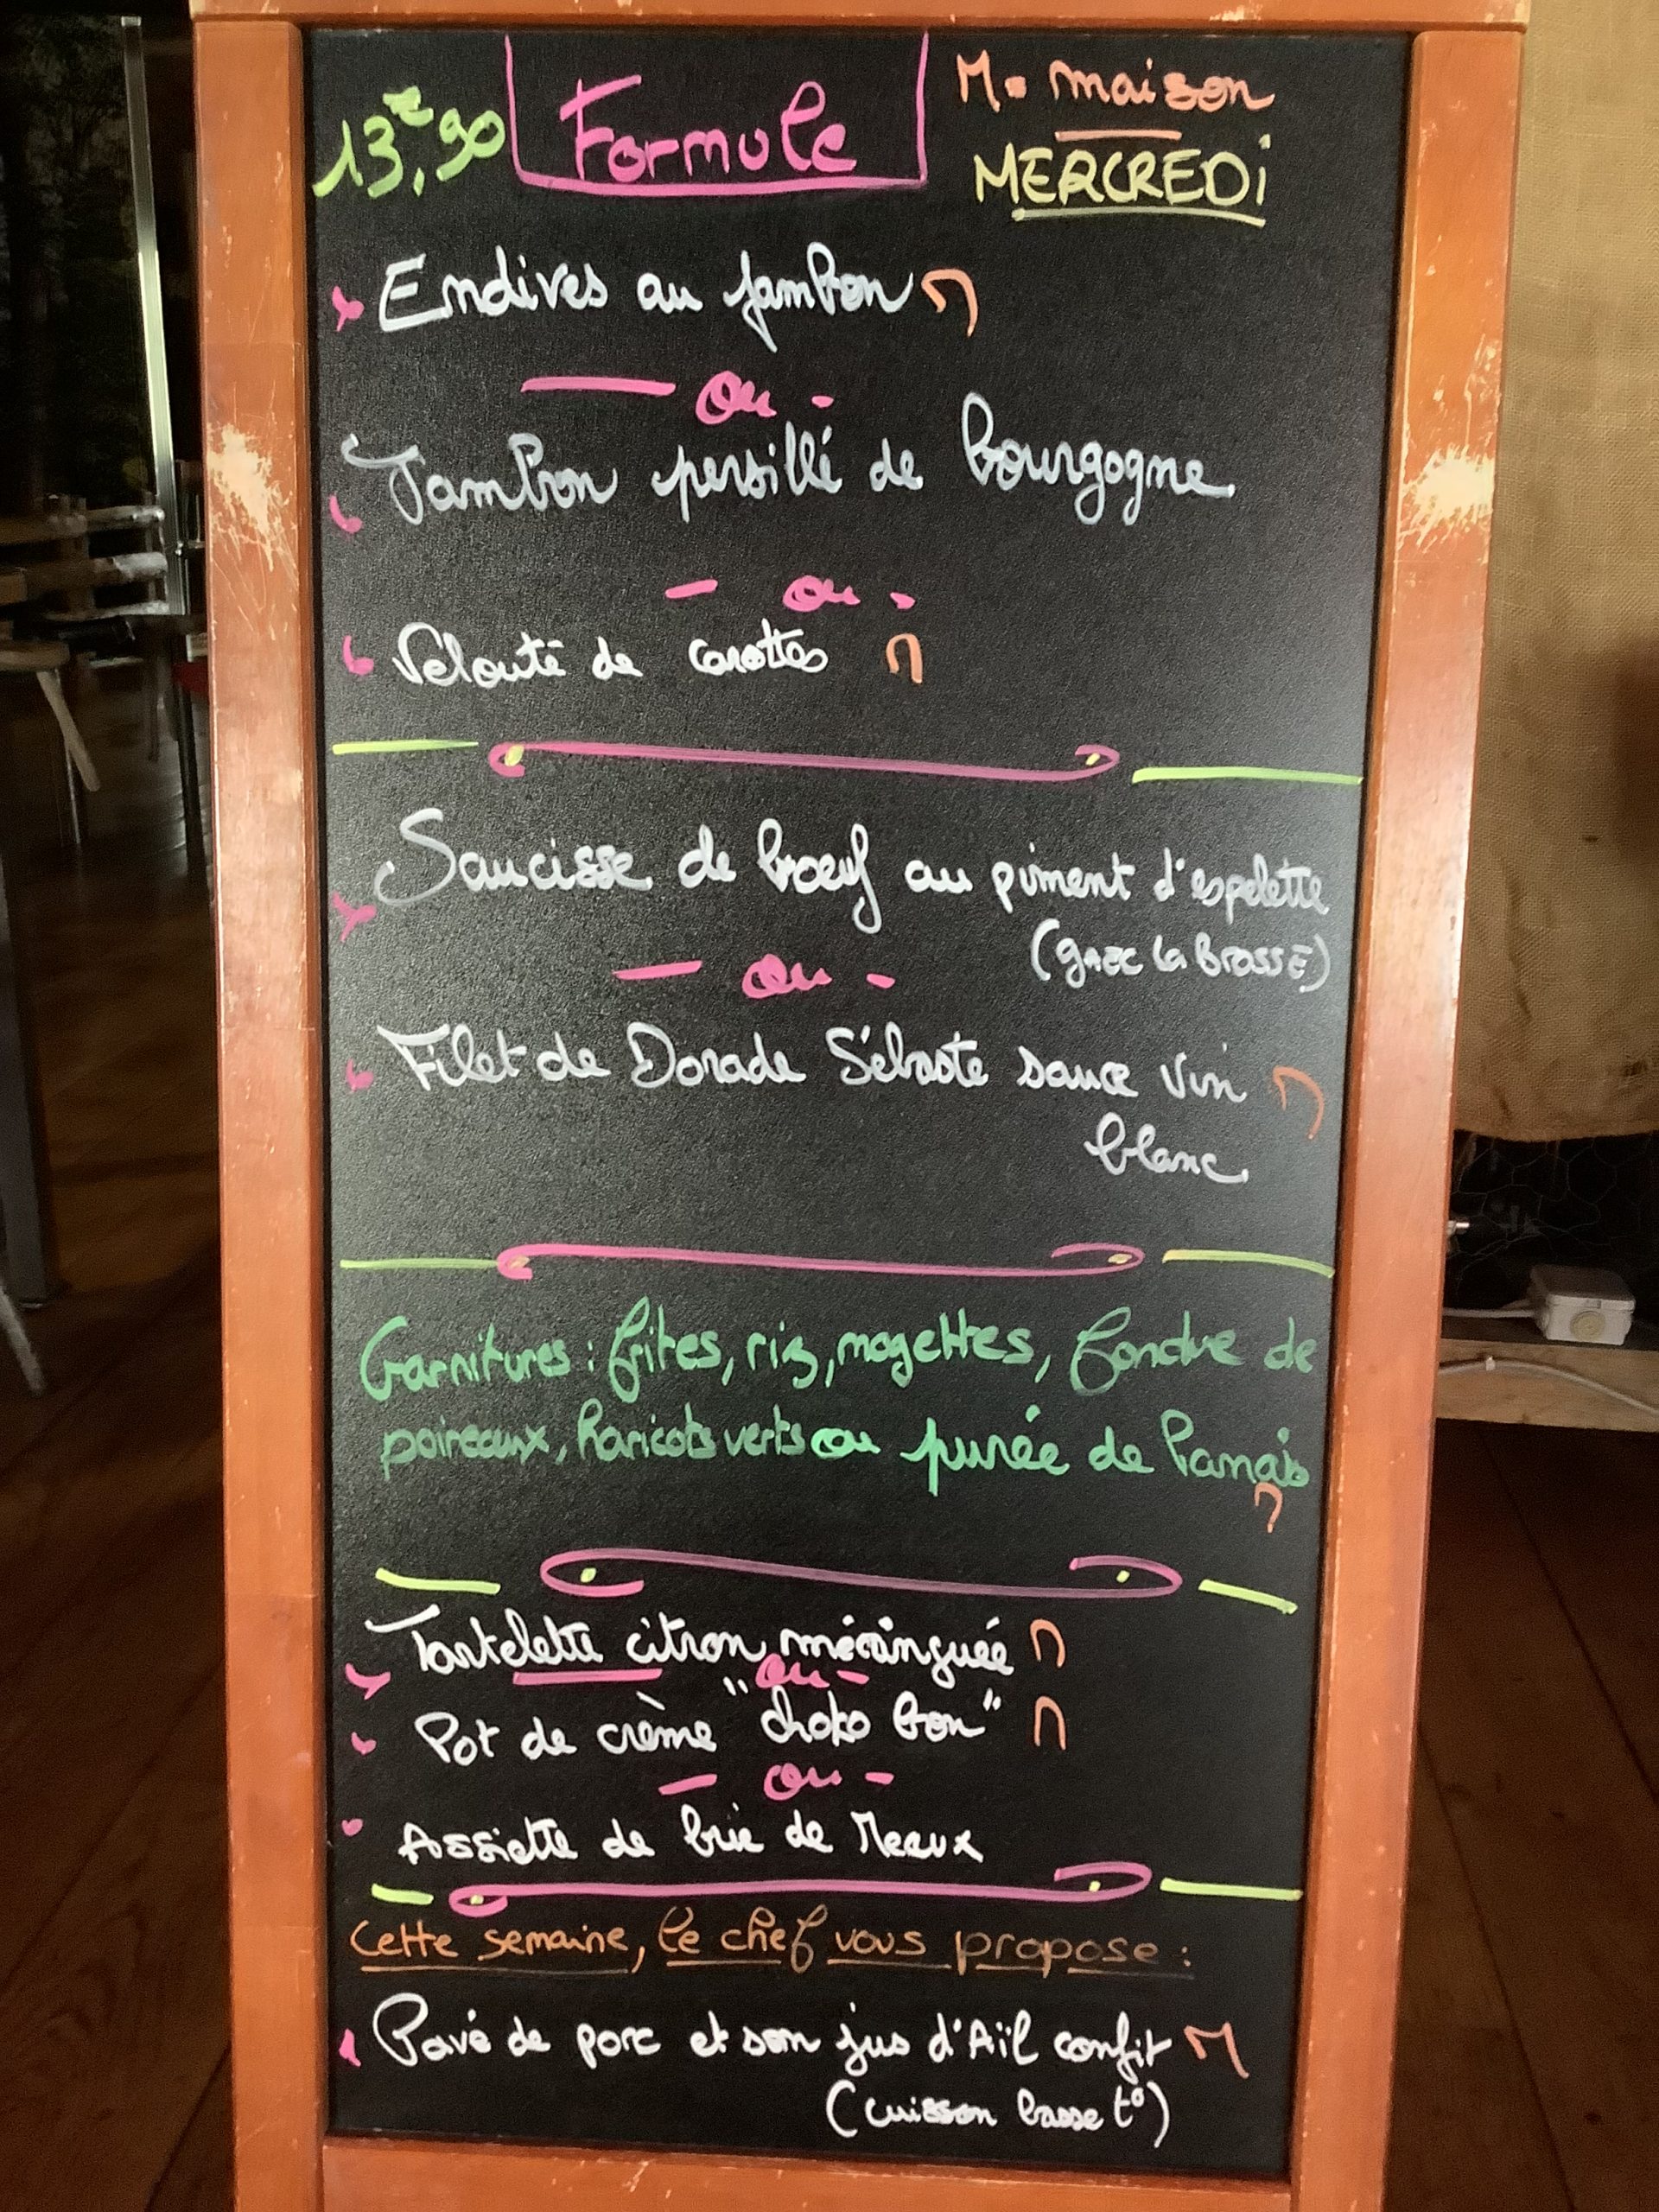 13,€90 Formule M= maison
MERCREDi
Endives au jambon M
ou
Jambon persillé de bourgogne
ou
Velouté de carottes M
Saucisse de boeuf au piment d'espelette
(GAEC La BrossE)
ou
Filet de Dorade Sébaste sauce vin M
blanc
Garnitures : frites, riz, mogettes, fondue de
poireaux, haricots verts ou purée de Panais
M
Tartelette citron méringuée M
ou
Pot de crème "choko bon" M
ou
Assiette de brie de Meaux
Cette semaine, le chef vous propose :
Pavé de porc et son jus d'Aïl confit M
(cuisson basse t°)